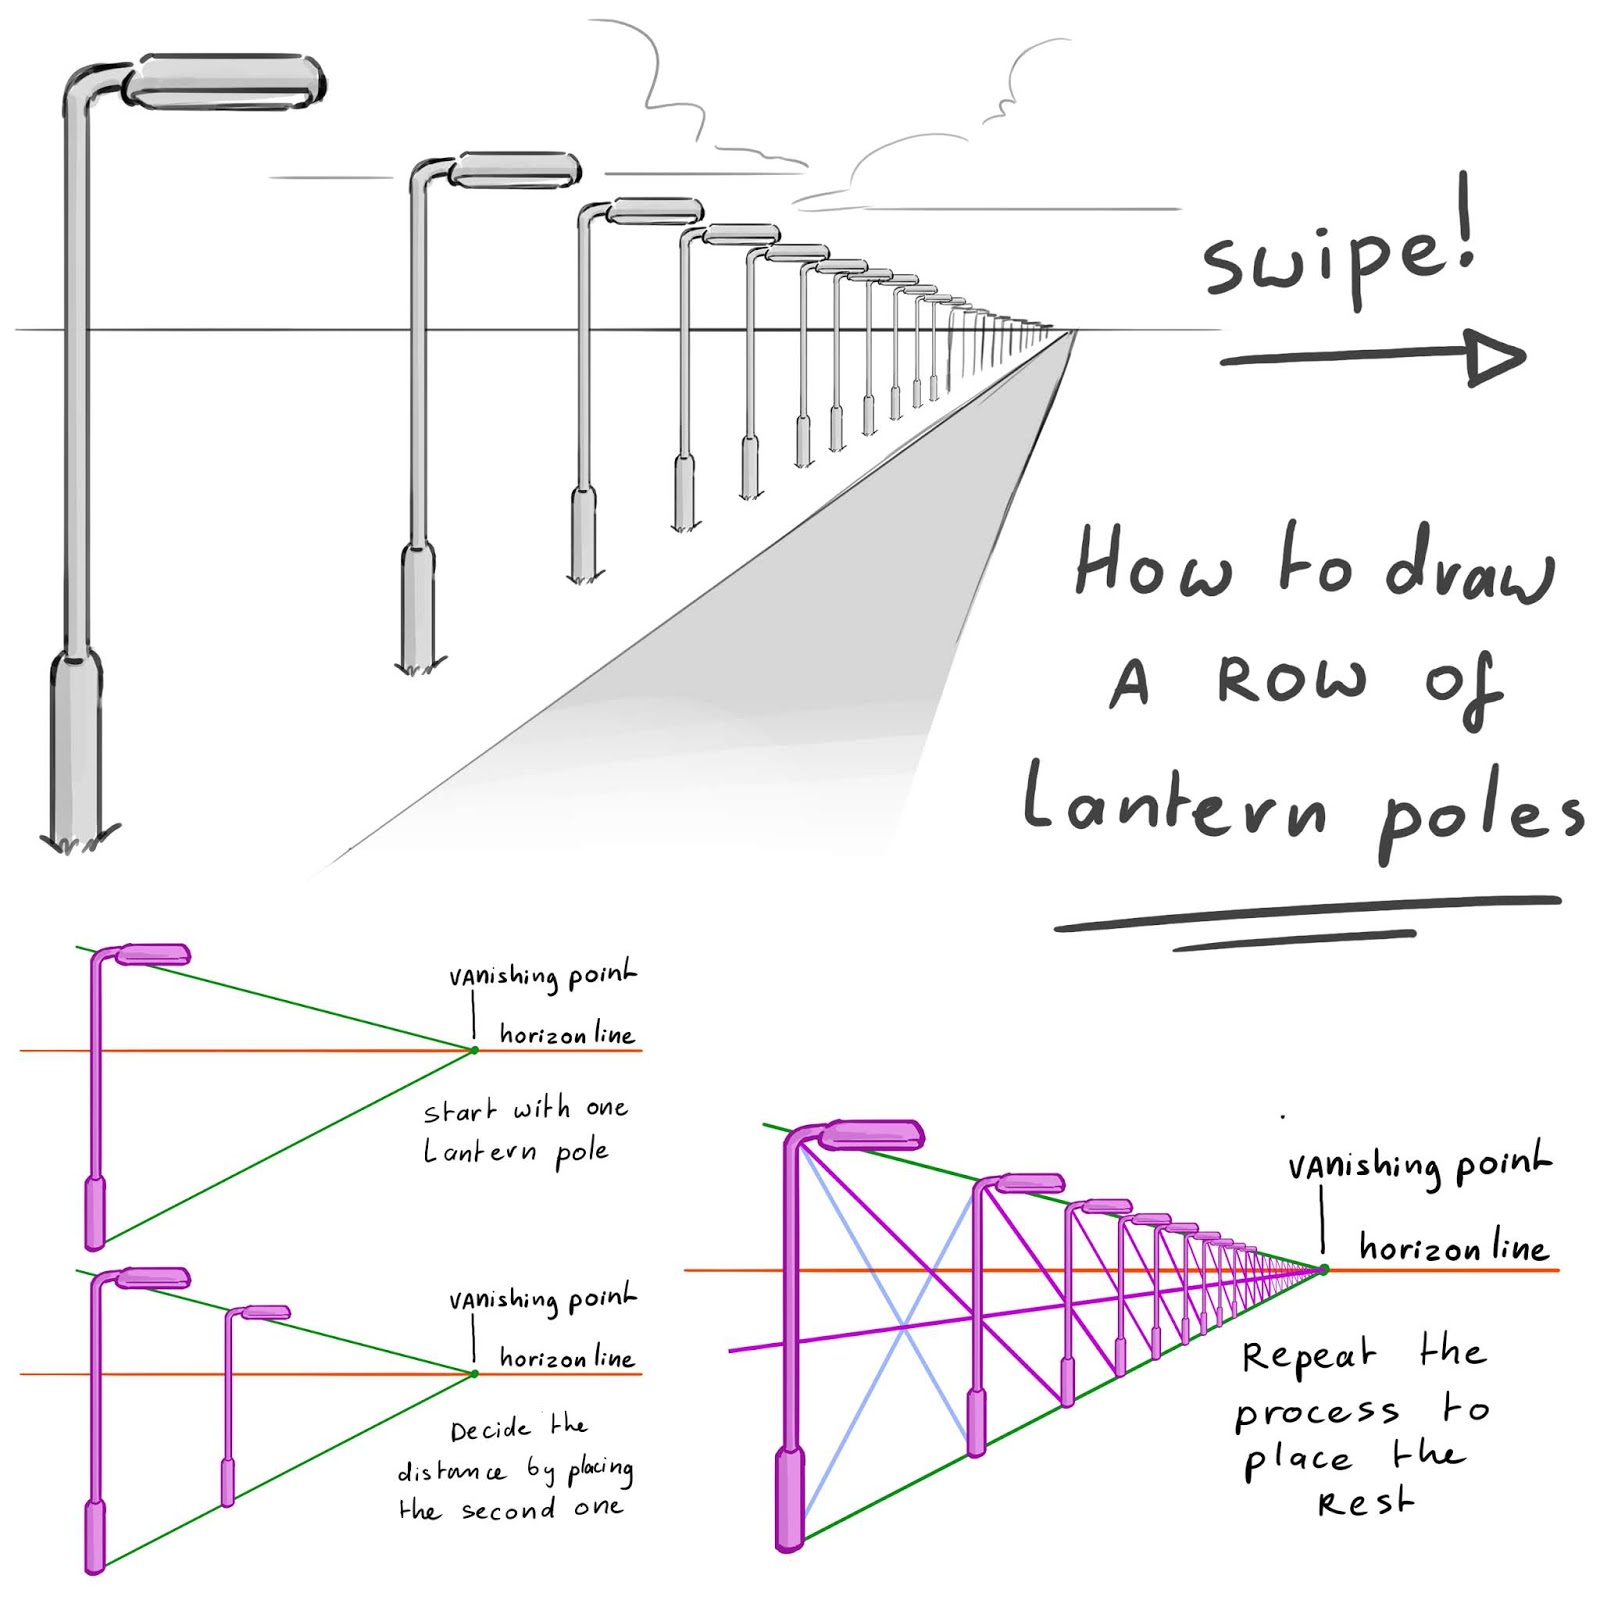 swipe!
How to draw
A ROW of
Lantern poles
vanishing point
horizon line
start with one
Lantern pole
vanishing point
horizon line
Decide the
distance by placing
the second one
vanishing point
horizon line
Repeat the
process to
place the
Rest